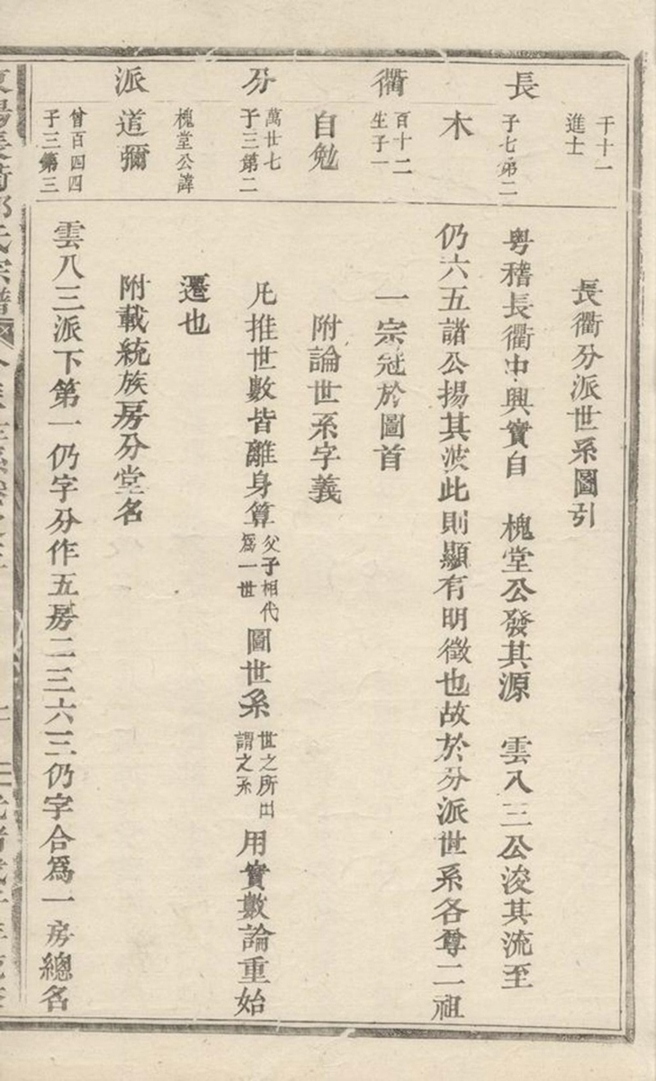 長衢分派世系圖引
粵稽長衢中興實自　槐堂公發其源　雲八三公浚其流至
仍六五諸公揚其波此則顯有明徵也故於分派世系各尊二祖
一宗冠於圖首
附論世系字義
凡推世數皆離身算父子相代為一世圖世系世之所出謂之系用實數論重始
遷也
附載統族房分堂名
雲八三派下第一仍字分作五房二三六三仍字合爲一房總名
長衢分派
干十一
進士
子七第二
木
百十二
生子一
自勉
萬廿七
子三第二
槐堂公諱
道彌
曾百四四
子三第三